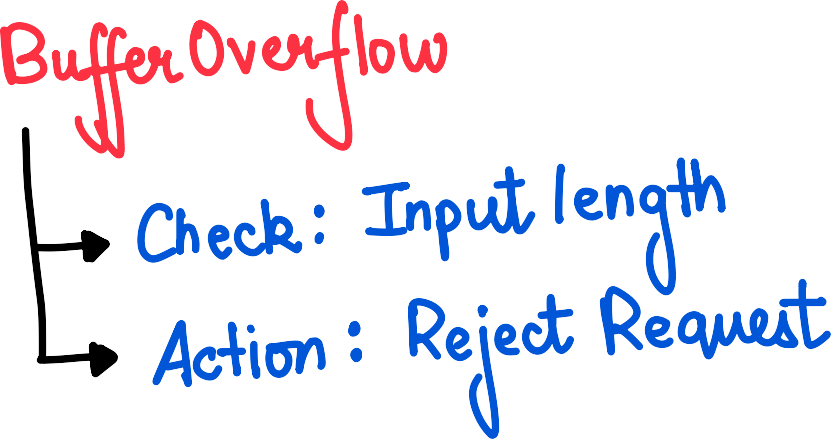 Buffer Overflow
Check: Input length
Action: Reject Request